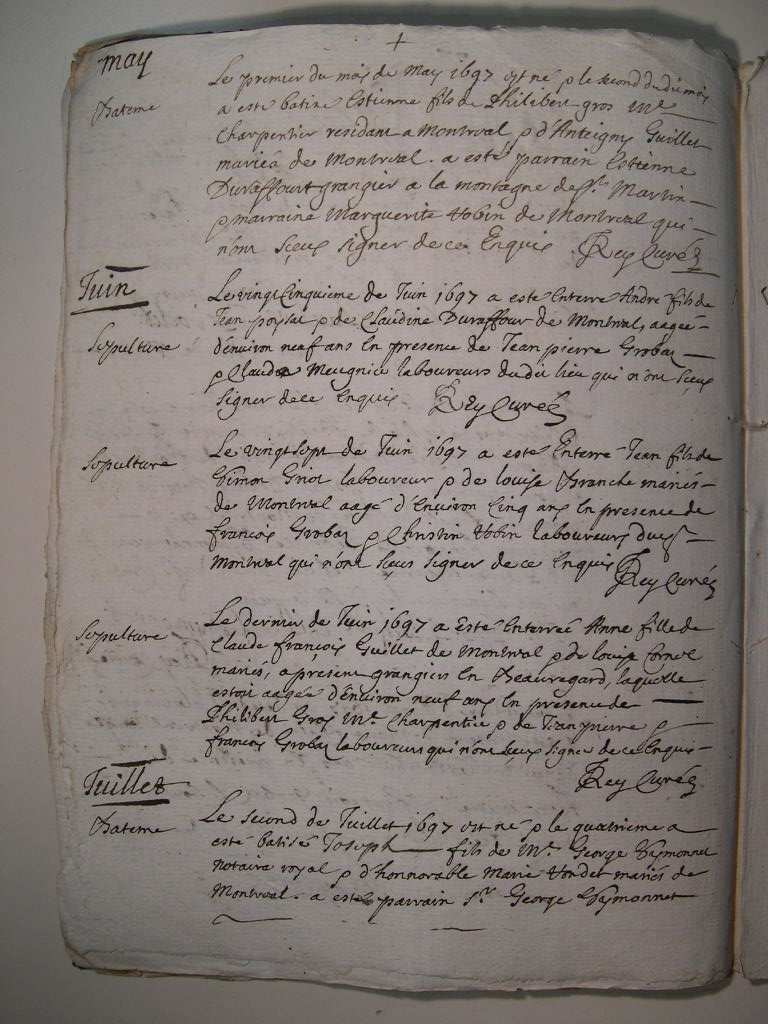 may
Le premier du mois de May 1697 est né & le second dudi mois
Bateme
a esté batisé Estienne fils de Philibert gros Me
Charpentier residant a Montreal & d'Anteigny Guillet
mariés de Montreal. a esté parrain Estienne
Duraffourt grangier a la montagne de St Martin
& marraine Marguerite de Montreal qui
n'ont sçeus signer de ce Enquis Rey Curé
Juin
Le vingt Cinquieme de Juin 1697 a esté Enterré André fils de
Jean & de Claudine Duraffour de Montreal, aagée
Sepulture
d'environ neuf ans En presence de Jean pierre Grobaz
& Claude Meugnier laboureurs dudi lieu qui n'ont sçeus
signer de ce Enquis Rey Curé
Le vingt sept de Juin 1697 a esté Enterré Jean fils de
Sepulture
Simon Griot laboureur & de louise Branche mariés
de Montreal aagé d'Environ Cinq ans En presence de
françois Grobaz & Christin laboureurs
Montreal qui n'ont sçeus signer de ce Enquis Rey Curé
Le dernier de Juin 1697 a Esté Enterreé Anne fille de
Sepulture
Claude françois Guillet de Montreal & de louise
mariés, a present grangiers En Beauregard, laquelle
estoit aagée d'environ neuf ans En presence de
Philibert Gros Me Charpentier & de Jean pierre &
françois Grobaz laboureurs qui n'ont sçeus signe de ce Enquis
Rey Curé
Juillet
Le second de Juillet 1697 est né & le quatrieme a
Bateme
esté batisé Joseph fils de Mr George Aymonnet
notaire royal & d'honnorable Marie mariés de
Montreal. a esté parrain Sr George Aymonnet